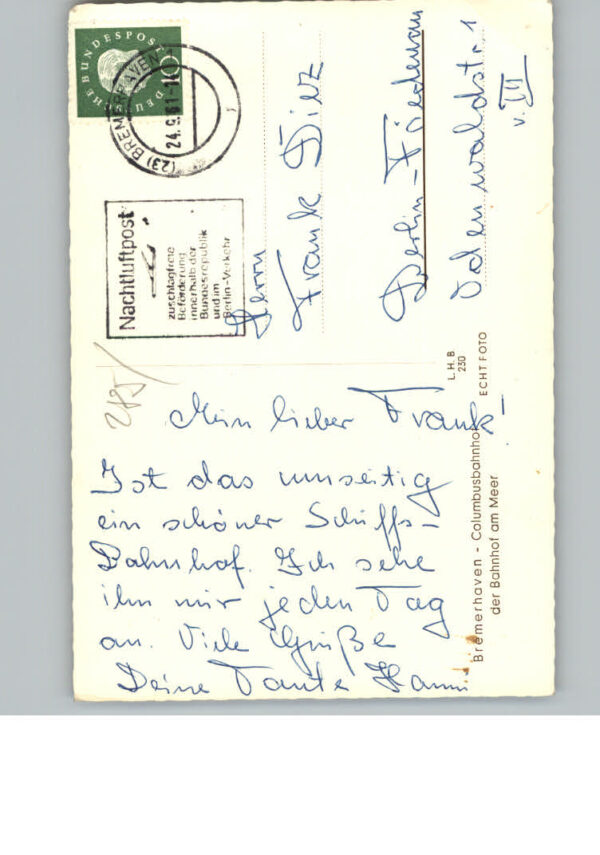 DEUTSCHE BUNDESPOST
10
(23) BREMERHAVEN 1
24.9.61-14
Nachtluftpost
zuschlagfreie
Beförderung
innerhalb der
Bundesrepublik
und im
Berlin-Verkehr
Herrn
Frank Dietz
Berlin-Friedenau
Odenwaldstr. 1
v. III
L. H. B.
230
ECHT FOTO
Bremerhaven - Columbusbahnhof
der Bahnhof am Meer
Mein lieber Frank!
Ist das umseitig
ein schöner Schiffs-
Bahnhof. Ich sehe
ihn mir jeden Tag
an. Viele Grüße
Deine Tante Hanni